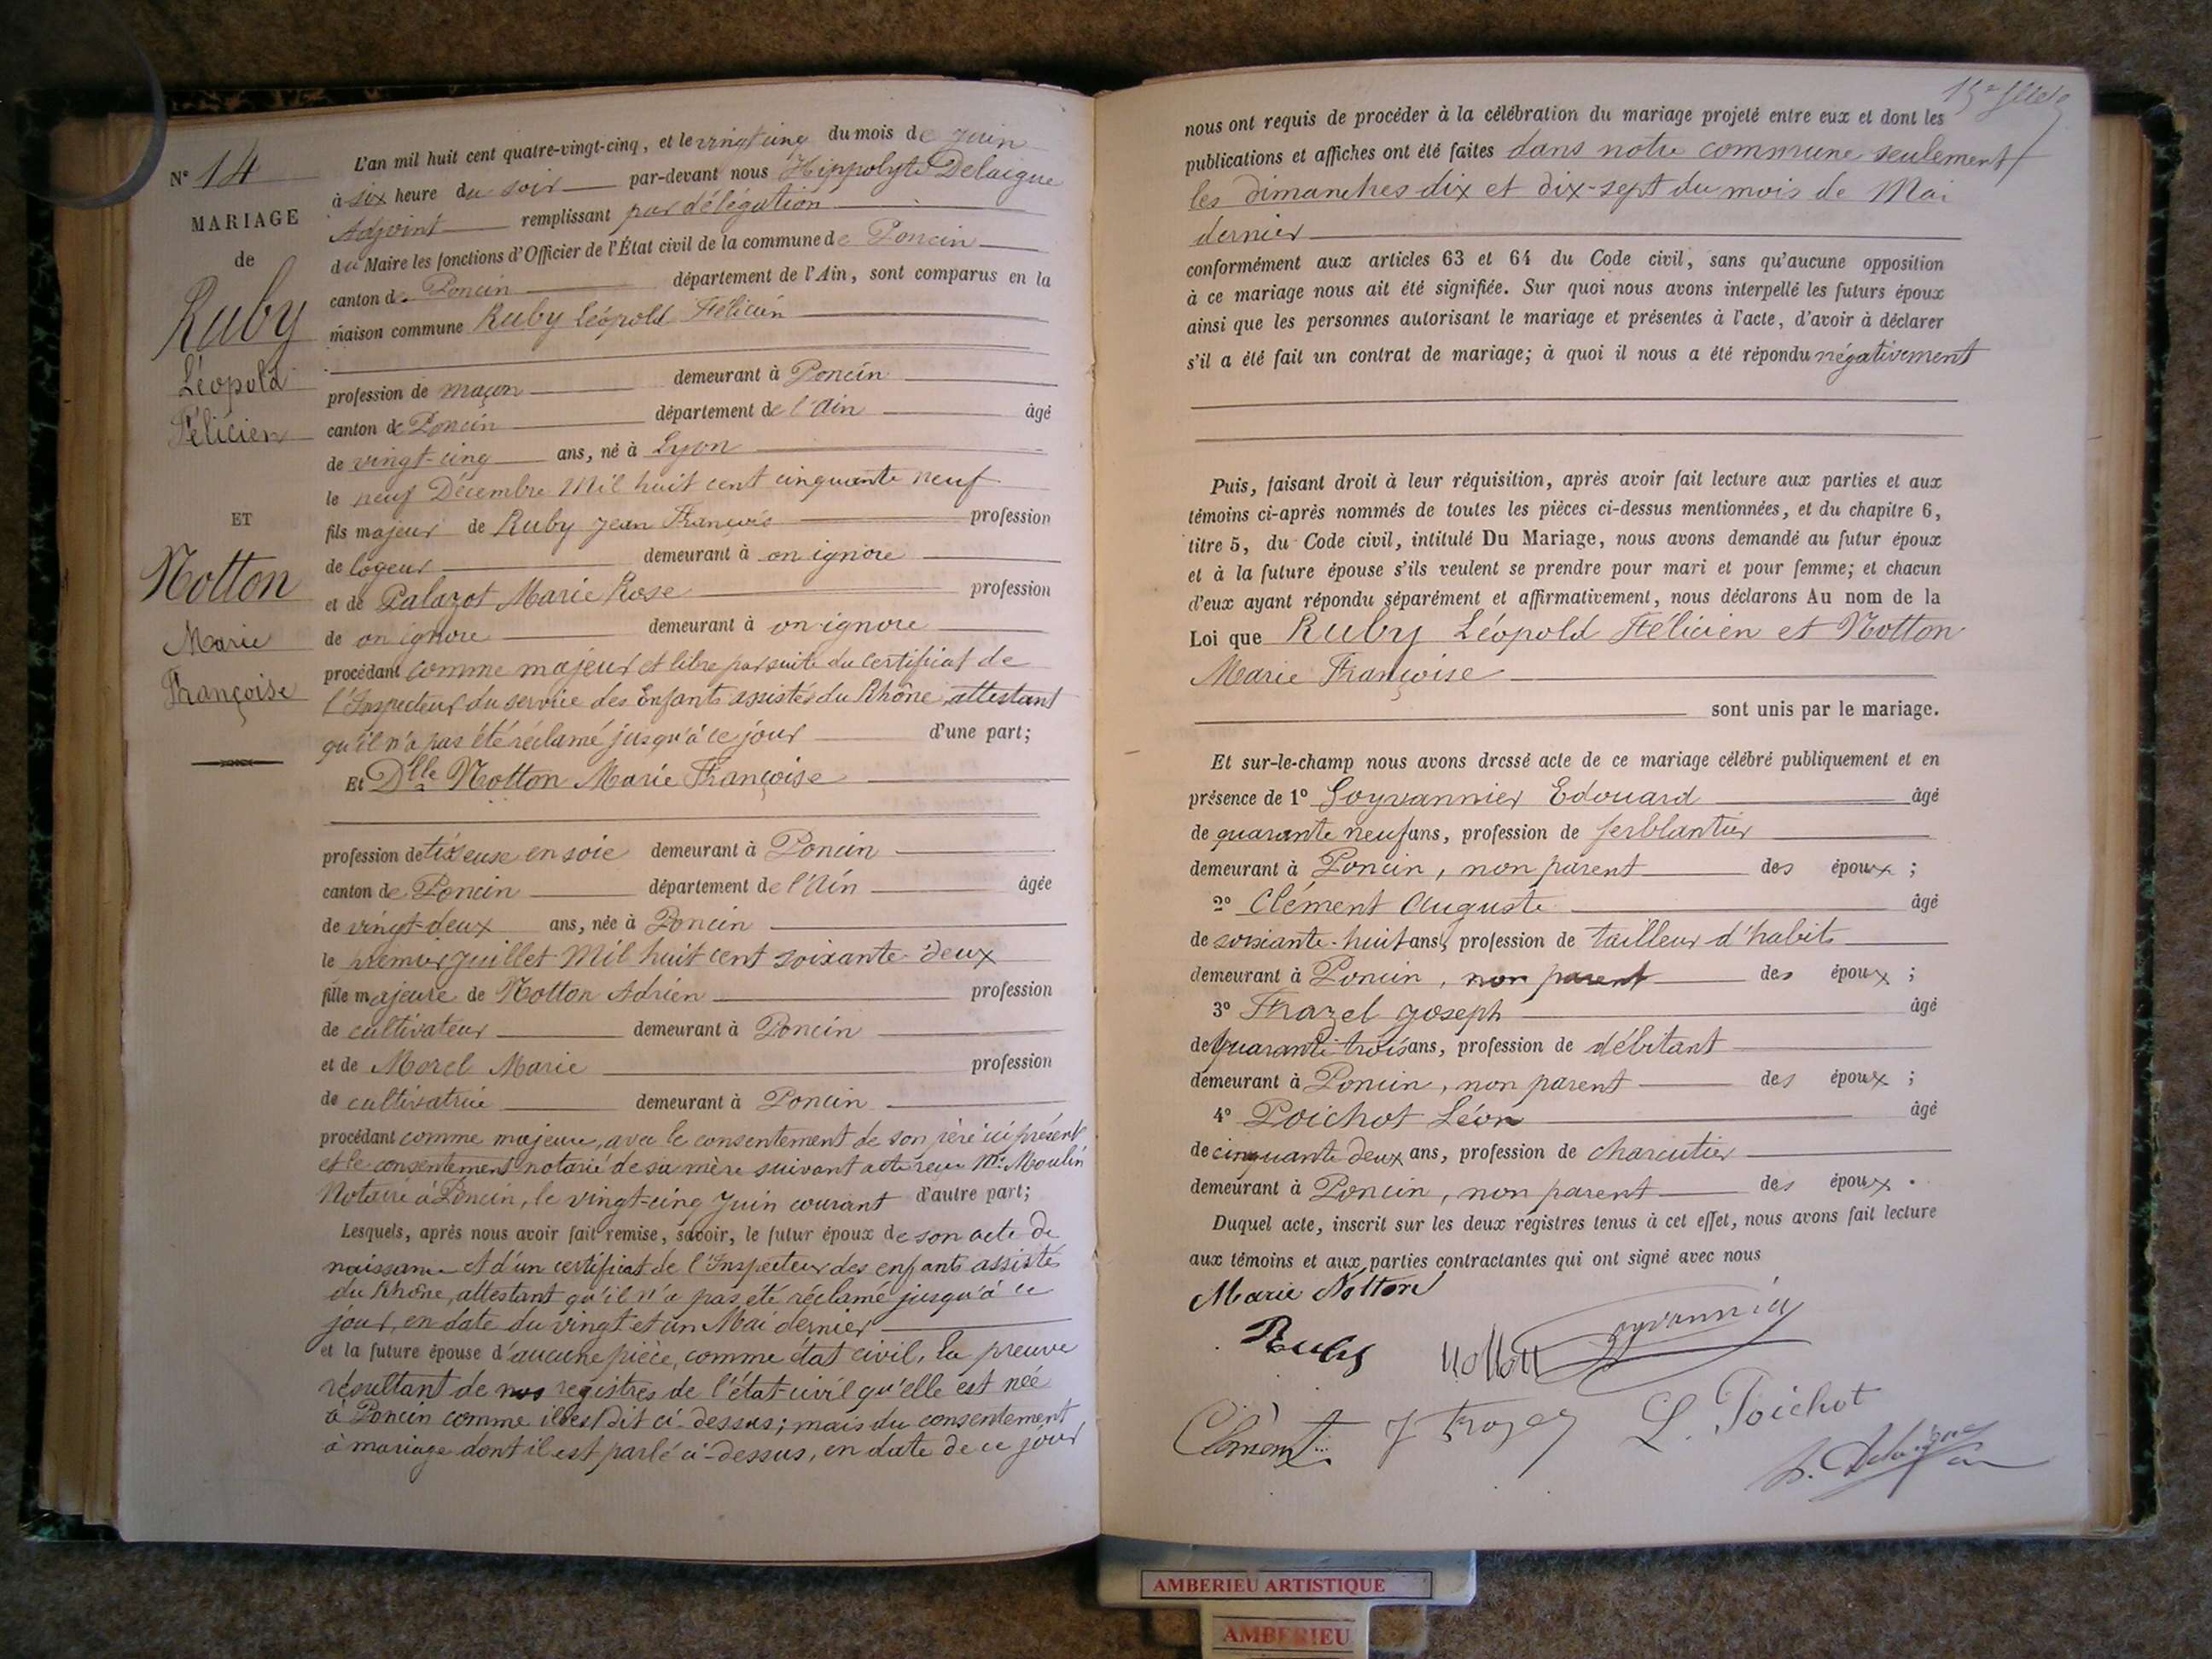 N° 14
MARIAGE
de
Ruby
Léopold
Félicien
ET
Notton
Marie
Françoise
L'an mil huit cent quatre-vingt-cinq, et le vingt cinq du mois de Juin
à six heure du soir par-devant nous Hippolyte Delaigue
Adjoint remplissant par délégation
du Maire les fonctions d'Officier de l'État civil de la commune de Poncin
canton de Poncin département de l'Ain, sont comparus en la
maison commune Ruby Léopold Félicien
profession de maçon demeurant à Poncin
canton de Poncin département de l'Ain âgé
de vingt-cinq ans, né à Lyon
le neuf Décembre Mil huit cent cinquante neuf
fils majeur de Ruby Jean François profession
de logeur demeurant à on ignore
et de Palazot Marie Rose profession
de on ignore demeurant à on ignore
procédant comme majeur et libre par suite du certificat de
l'Inspecteur du service des Enfants assistés du Rhône, attestant
qu'il n'a pas été réclamé jusqu'à ce jour d'une part;
Et Dlle Notton Marie Françoise
profession de tisseuse en soie demeurant à Poncin
canton de Poncin département de l'Ain âgée
de vingt-deux ans, née à Poncin
le premier Juillet Mil huit cent soixante-deux
fille majeure de Notton Adrien profession
de cultivateur demeurant à Poncin
et de Morel Marie profession
de cultivatrice demeurant à Poncin
procédant comme majeure, avec le consentement de son père ici présent
et le consentement notarié de sa mère suivant acte reçu Me Moulin
Notaire à Poncin, le vingt-cinq Juin courant d'autre part;
Lesquels, après nous avoir fait remise, savoir, le futur époux de son acte de
naissance et d'un certificat de l'Inspecteur des enfants assistés
du Rhône, attestant qu'il n'a pas été réclamé jusqu'à ce
jour, en date du vingt et un Mai dernier
et la future épouse d'aucune pièce, comme état civil, la preuve
résultant de nos registres de l'état-civil qu'elle est née
à Poncin comme il est dit ci-dessus; mais du consentement
à mariage dont il est parlé ci-dessus, en date de ce jour
nous ont requis de procéder à la célébration du mariage projeté entre eux et dont les
publications et affiches ont été faites dans notre commune seulement
les dimanches dix et dix-sept du mois de Mai
dernier
conformément aux articles 63 et 64 du Code civil, sans qu'aucune opposition
à ce mariage nous ait été signifiée. Sur quoi nous avons interpellé les futurs époux
ainsi que les personnes autorisant le mariage et présentes à l'acte, d'avoir à déclarer
s'il a été fait un contrat de mariage; à quoi il nous a été répondu négativement
Puis, faisant droit à leur réquisition, après avoir fait lecture aux parties et aux
témoins ci-après nommés de toutes les pièces ci-dessus mentionnées, et du chapitre 6,
titre 5, du Code civil, intitulé Du Mariage, nous avons demandé au futur époux
et à la future épouse s'ils veulent se prendre pour mari et pour femme; et chacun
d'eux ayant répondu séparément et affirmativement, nous déclarons Au nom de la
Loi que Ruby Léopold Félicien et Notton
Marie Françoise
sont unis par le mariage.
Et sur-le-champ nous avons dressé acte de ce mariage célébré publiquement et en
présence de 1° Goyvannier Edouard âgé
de quarante neuf ans, profession de ferblantier
demeurant à Poncin, non parent des époux ;
2° Clément Auguste âgé
de soixante-huit ans, profession de tailleur d'habits
demeurant à Poncin, non parent des époux ;
3° Frazel Joseph âgé
de quarante-trois ans, profession de débitant
demeurant à Poncin, non parent des époux ;
4° Poichot Léon âgé
de cinquante deux ans, profession de charcutier
demeurant à Poncin, non parent des époux .
Duquel acte, inscrit sur les deux registres tenus à cet effet, nous avons fait lecture
aux témoins et aux parties contractantes qui ont signé avec nous
Marie Notton
Ruby Notton Goyvannier
Clément L. Poichot
AMBERIEU ARTISTIQUE
AMBERIEU